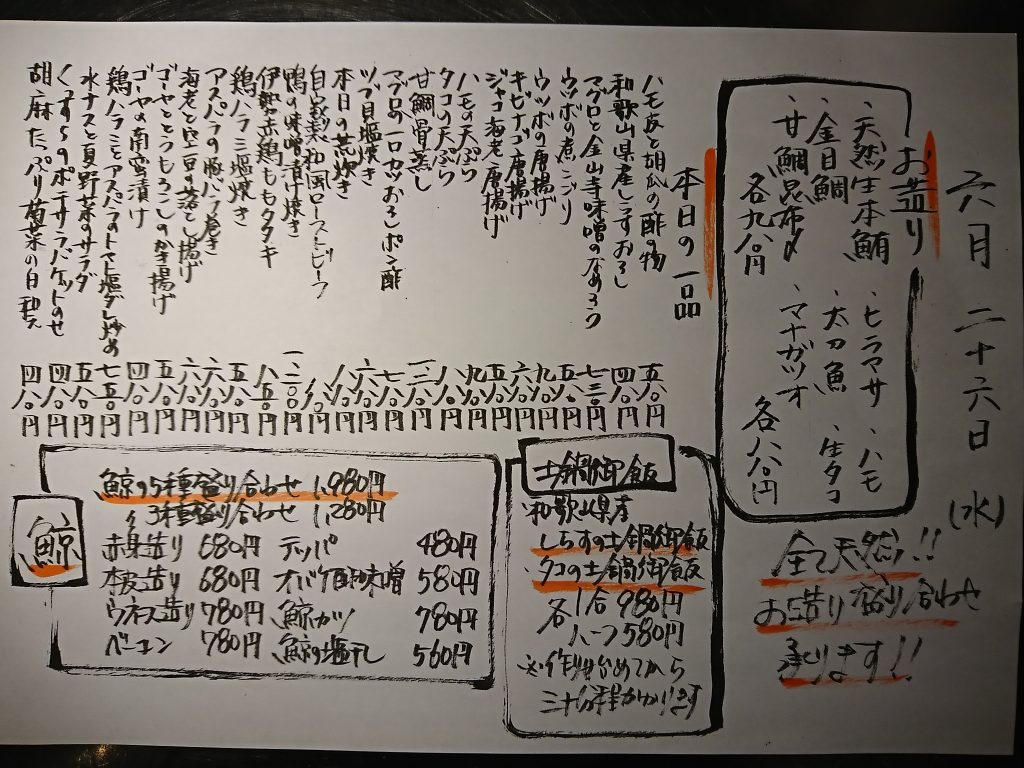 六月二十六日(水)
お造り
・天然生本鮪
・金目鯛
・甘鯛昆布〆
各九八〇円
・ヒラマサ
・太刀魚
・マナガツオ
・ハモ
・生タコ
各八八〇円
全て天然!!
お造り盛り合わせ
承ります!!
本日の一品
ハモ皮と胡瓜の酢の物 五八〇円
和歌山県産しらすおろし 四八〇円
マグロと金山寺味噌のなめろう 七三〇円
ウツボの煮こごり 五八〇円
ウツボの唐揚げ 九八〇円
キビナゴ唐揚げ 六八〇円
ジャコ海老唐揚げ 五八〇円
タコの天ぷら 九八〇円
ハモの天ぷら
甘鯛骨蒸し
マグロの一口カツおろしポン酢
ツブ貝塩焼き 七八〇円
本日の荒炊き 六八〇円
自家製和風ローストビーフ
鴨の味噌漬け焼き
伊勢赤鶏ももタタキ 八五〇円
鶏ハラミ塩焼き 五八〇円
アスパラの豚バラ巻き 六八〇円
海老と空豆の落とし揚げ 六八〇円
ゴーヤととうもろこしのかき揚げ 五八〇円
ゴーヤの南蛮漬け 四八〇円
鶏ハラミとアスパラのトマト塩ダレ炒め 七五〇円
水ナスと夏野菜のサラダ 五八〇円
くずし豆のポテサラバケットのせ 四八〇円
胡麻たっぷり菊菜の白和え 四八〇円
土鍋御飯
・和歌山県産
しらすの土鍋御飯
・タコの土鍋御飯
各1合 980円
ハーフ 580円
※作り始めてから
三十分程かかります
鯨
鯨の5種盛り合わせ 1,980円
〃 3種盛り合わせ 1,280円
赤身造り 680円 テッパ 480円
本皮造り 680円 オバケ酢味噌 580円
ウネス造り 780円 鯨カツ 780円
ベーコン 780円 鯨の塩干し 560円